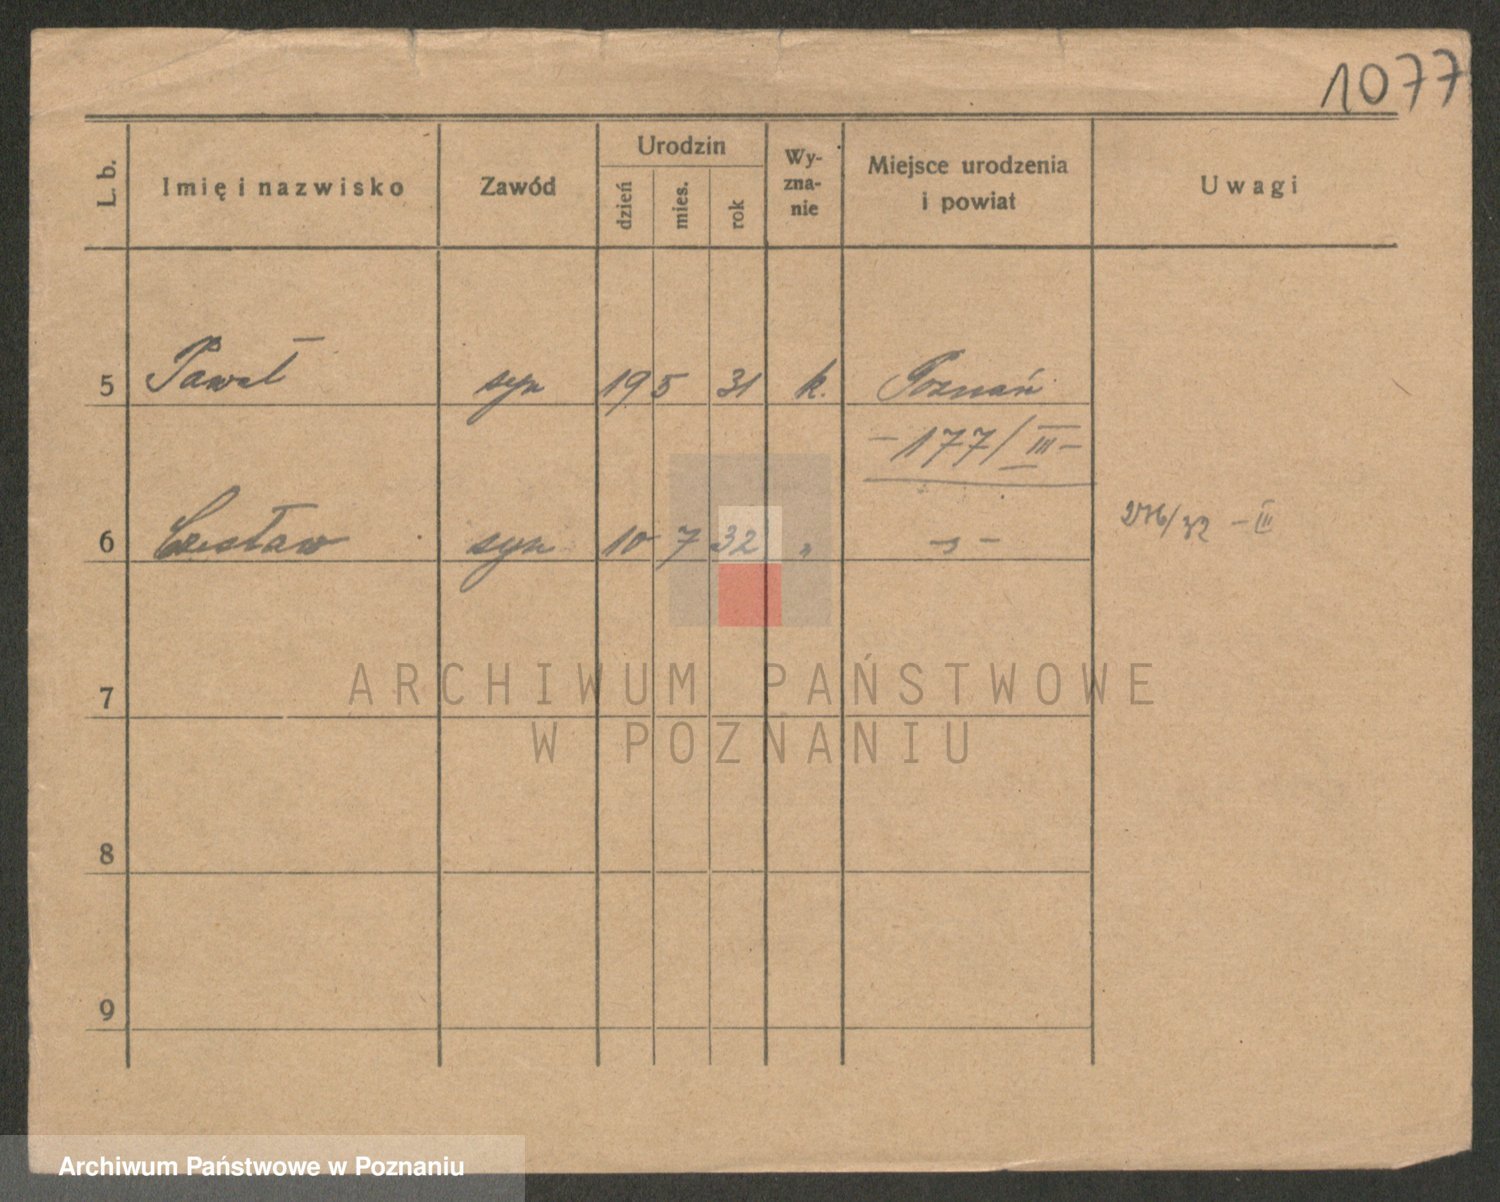 1077
L. b. Imię i nazwisko Zawód Urodzin dzień mies. rok Wy-zna-nie Miejsce urodzenia i powiat Uwagi
5 Paweł syn 19 5 31 k. Poznań
- 177/III -
6 Czesław syn 10 7 32 „ - „ -
276/32 - III
7
ARCHIWUM PAŃSTWOWE
W POZNANIU
8
9
Archiwum Państwowe w Poznaniu